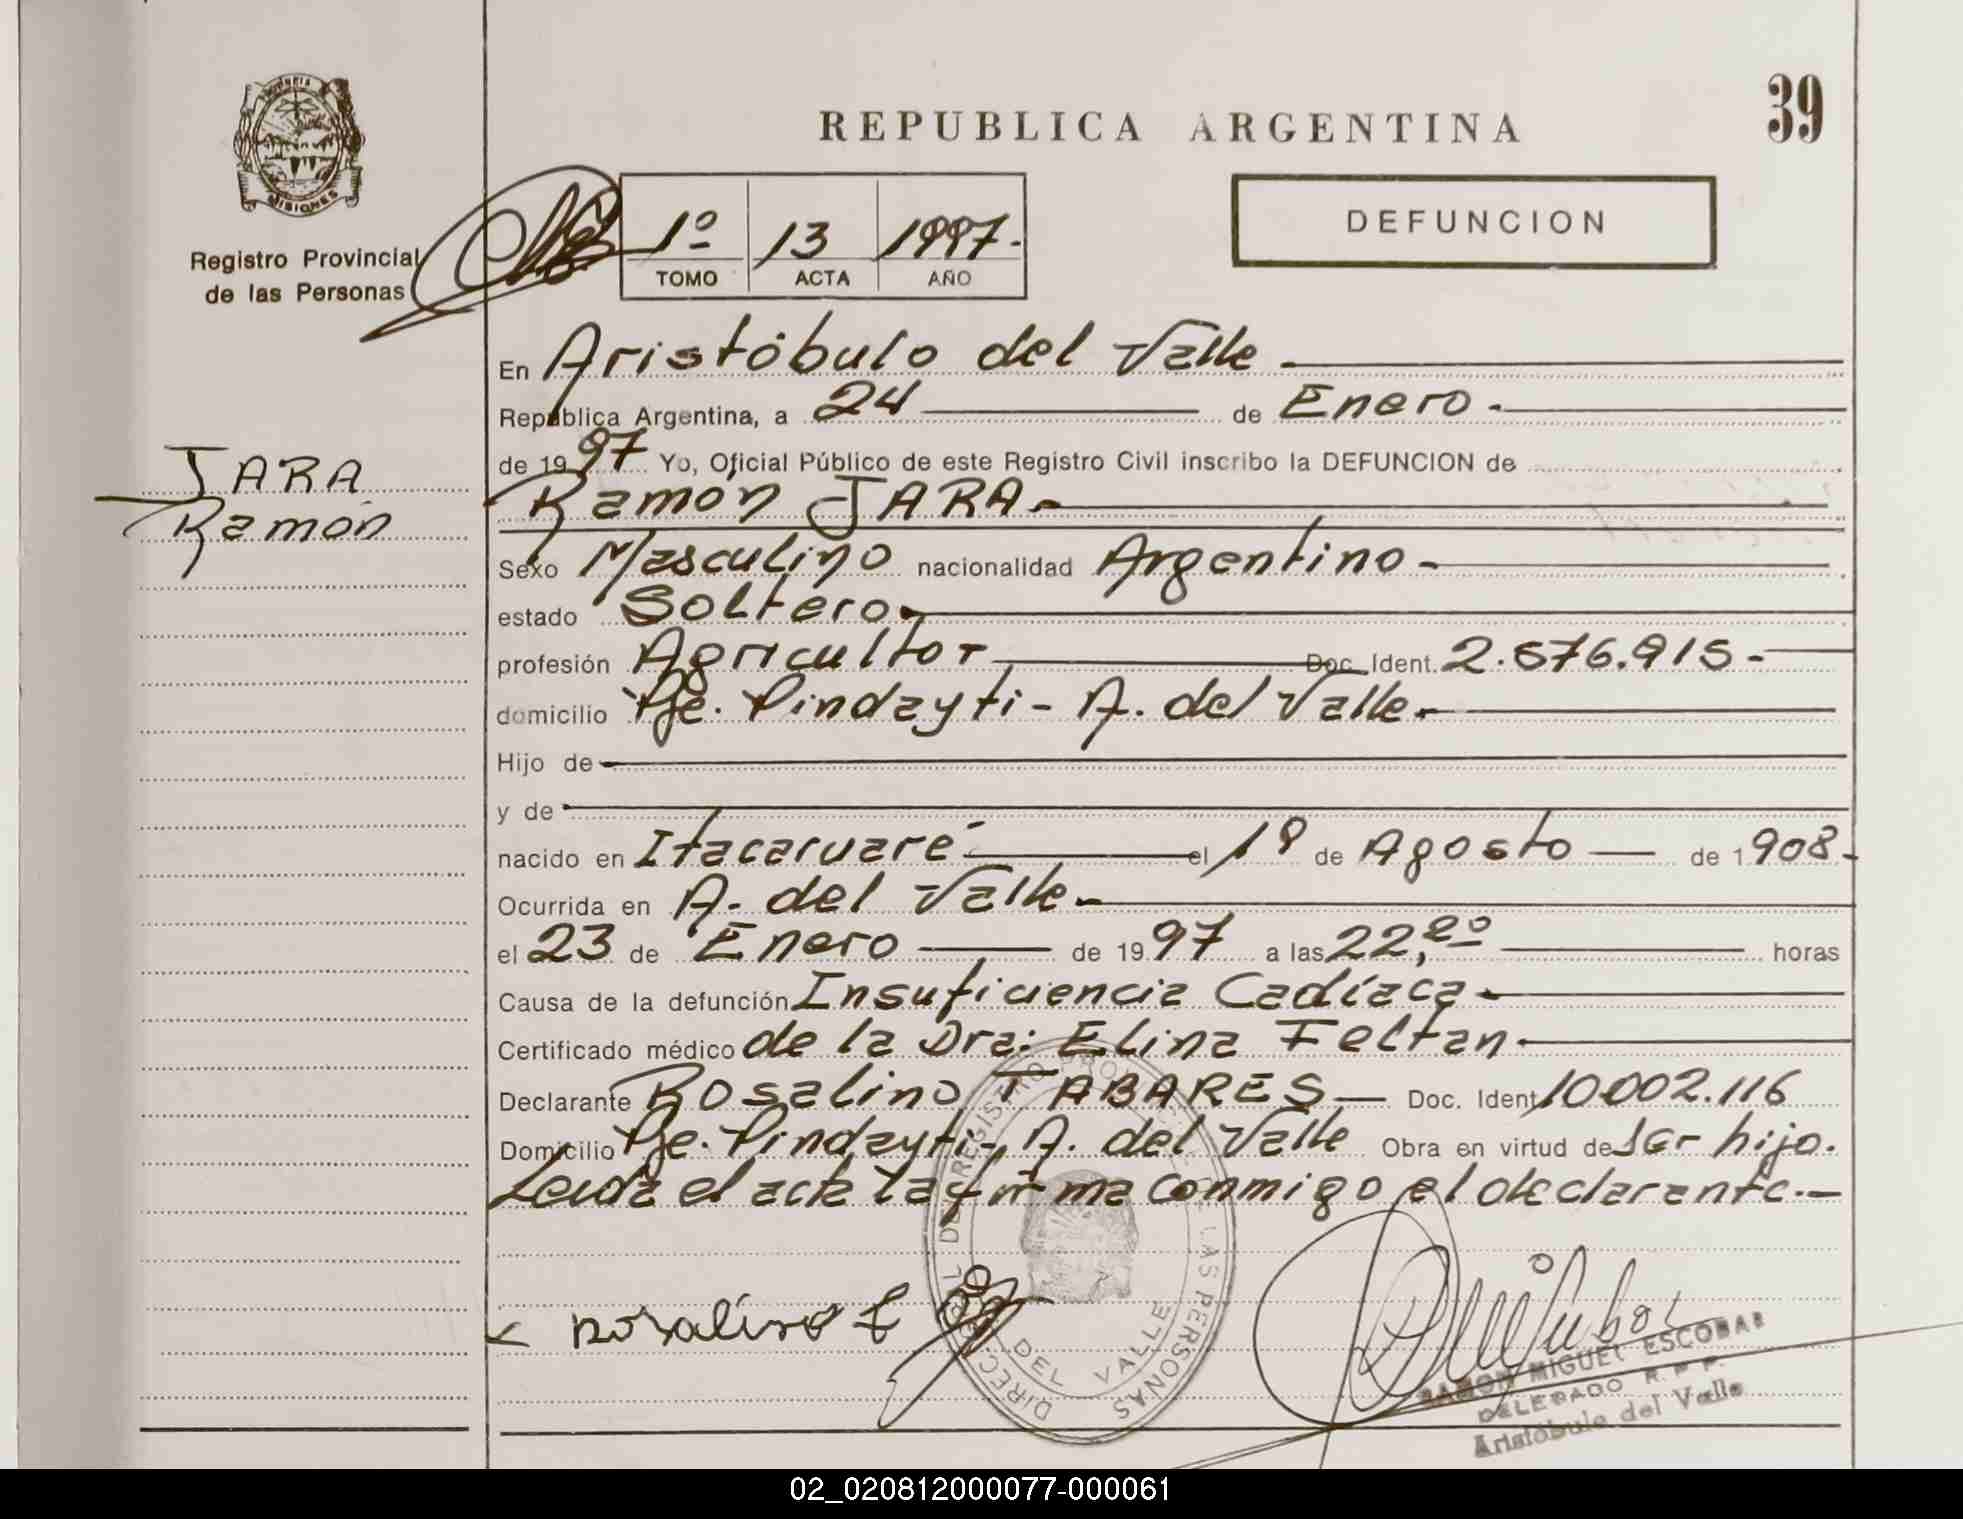 39
REPUBLICA ARGENTINA
MISIONES
Registro Provincial
de las Personas
1º 13 1997.-
TOMO ACTA AÑO
DEFUNCION
JARA
Ramón
En Aristóbulo del Valle
República Argentina, a 24 de Enero.-
de 1997 Yo, Oficial Público de este Registro Civil inscribo la DEFUNCION de
Ramón JARA.-
Sexo Masculino nacionalidad Argentino.-
estado Soltero.-
profesión Agricultor Doc. Ident. 2.576.915.-
domicilio Pje. Pindayti - A. del Valle.-
Hijo de
y de
nacido en Itacaruaré el 1º de Agosto de 1908.-
Ocurrida en A. del Valle.-
el 23 de Enero de 1997 a las 22,20 horas
Causa de la defunción Insuficiencia Cadíaca.-
Certificado médico de la Dra: Elina Feltan.-
Declarante Rosalino TABARES Doc. Ident 10.002.116
Domicilio Pje. Pindayti - A. del Valle Obra en virtud de Ser hijo.
Leida el acta la firma conmigo el declarante.-
Rosalino
DEL REGISTRO DE LAS PERSONAS
DEL VALLE
RAMON MIGUEL ESCOBAR
DELEGADO R.P.P.
Aristóbulo del Valle
02_020812000077-000061